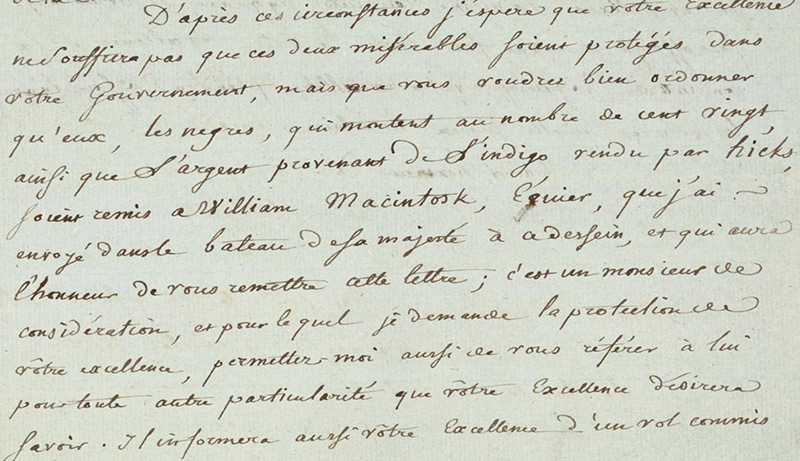 D'après ces circonstances j'espere que votre Excellence
ne souffrira pas que ces deux misérables soient protégés dans
vôtre Gouvernement, mais que vous voudrez bien ordonner
qu'eux, les negres, qui montent au nombre de cent vingt,
ainsi que l'argent provenant de l'indigo vendu par hicks,
soient remis a William Macintosh, Ecuier, que j'ai
envoyé dans le bateau de sa majesté à ce dessein, et qui aura
l'honneur de vous remettre cette lettre; c'est un monsieur de
considération, et pour lequel je demande la protection de
vôtre excellence, permettez-moi aussi de vous référer à lui
pour toute autre particularité que vôtre Excellence désirera
savoir. Il informera aussi vôtre Excellence d'un vol commis